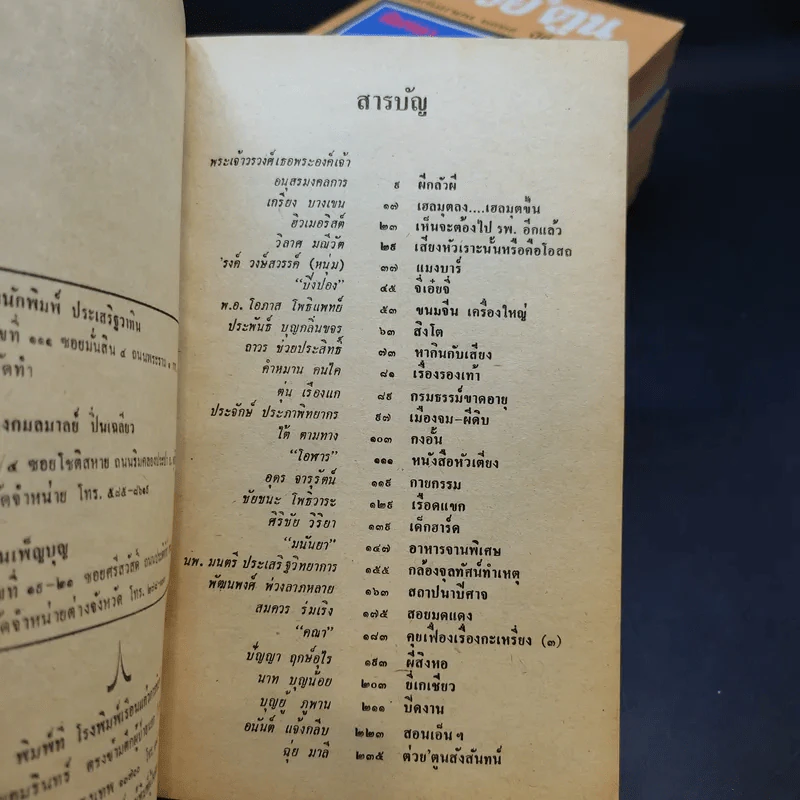 สารบัญ
พระเจ้าวรวงศ์เธอพระองค์เจ้า
อนุสรมงคลการ ๙ ผีกลัวผี
เกรียง บางเขน ๑๗ เฮลมุตลง....เฮลมุตขึ้น
ฮิวเมอริสต์ ๒๓ เห็นจะต้องไป รพ. อีกแล้ว
วิลาศ มณีวัต ๒๙ เสียงหัวเราะนั้นหรือคือโอสถ
'รงค์ วงษ์สวรรค์ (หนุ่ม) ๓๗ แมงบาร์
"ปิ๋งปอง" ๔๕ จี่เอ๋ยจี่
พ.อ. โอภาส โพธิแพทย์ ๕๓ ขนมจีน เครื่องใหญ่
ประพันธ์ บุญกลิ่นขจร ๖๓ สิงโต
ถาวร ช่วยประสิทธิ์ ๗๓ หากินกับเสียง
คำหมาน คนไค ๘๑ เรื่องรองเท้า
ตุ่น เรืองแก ๘๙ กรมธรรม์ขาดอายุ
ประจักษ์ ประภาพิทยากร ๙๗ เมืองจม-ผีดิบ
ใต้ ตามทาง ๑๐๓ กงอั้น
"โอฬาร" ๑๑๑ หนังสือหัวเตียง
อุดร จารุรัตน์ ๑๑๙ กายกรรม
ชัยชนะ โพธิวาระ ๑๒๙ เรือดแขก
ศิริชัย วิริยา ๑๓๙ เด็กฮาร์ด
"มนันยา" ๑๔๗ อาหารจานพิเศษ
นพ. มนตรี ประเสริฐวิทยาการ ๑๕๕ กล้องจุลทัศน์ทำเหตุ
พัฒนพงศ์ พ่วงลาภหลาย ๑๖๓ สถาปนาปีศาจ
สมควร ร่มเริง ๑๗๕ สอยมดแดง
"คณา" ๑๘๓ คุยเฟื่องเรื่องกะเหรี่ยง (๓)
ปัญญา ฤกษ์อุไร ๑๙๓ ผีสิงหอ
นาท บุญน้อย ๒๐๓ ยี่เกเชียว
บุญยู้ ภูพาน ๒๑๑ ปิดงาน
อนันต์ แจ้งกลีบ ๒๒๓ สอนเอ็นฯ
ฉุ่ย มาลี ๒๓๕ ต่วย'ตูนสังสันทน์
นักพิมพ์ ประเสริฐวาทิน
๑๑๑ ซอยมั่นสิน ๔ ถนนพระราม
จัดทำ
งกมลมาลย์ ปิ่นเฉลียว
๔ ซอยโชติสหาย ถนนริมคลองประปา
จัดจำหน่าย โทร. ๕๘๕-๘๖๑๙
เพ็ญบุญ
ที่ ๑๙-๒๑ ซอยศรีสวัสดิ์
จัดจำหน่ายต่างจังหวัด โทร.
พิมพ์ที่ โรงพิมพ์เรือนแก้วการพิมพ์